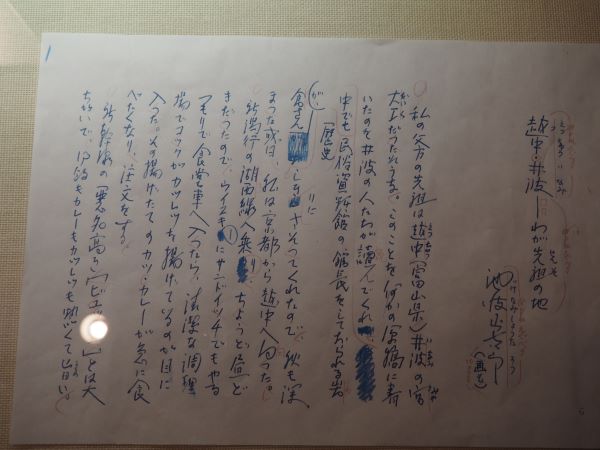 越中・井波——わが先祖の地
池波正太郎
(画も)
私の父方の先祖は越中(富山県)井波の宮
大工だったそうな。このことを何かの原稿に書
いたのを井波の人たちが読んでくれ、
中でも民俗資料館の館長をしておられる岩
倉さんが、しきりにさそってくれたので、秋も深
「歴史
まった或日、私は京都から越中へ向った。
新潟行の湖西線へ乗り、ちょうど昼ど
きだったので、ウイスキーにサンドイッチでもやる
つもりで食堂車へ入ったら、清潔な調理
場でコックがカツレツを揚げているのが目に
入った。その揚げたてのカツ・カレーが急に食
べたくなり、注文をする。
新幹線の「悪名高き」ビュッ とは大
ちがいで、 もカレーもカツレツも熱くて旨い。